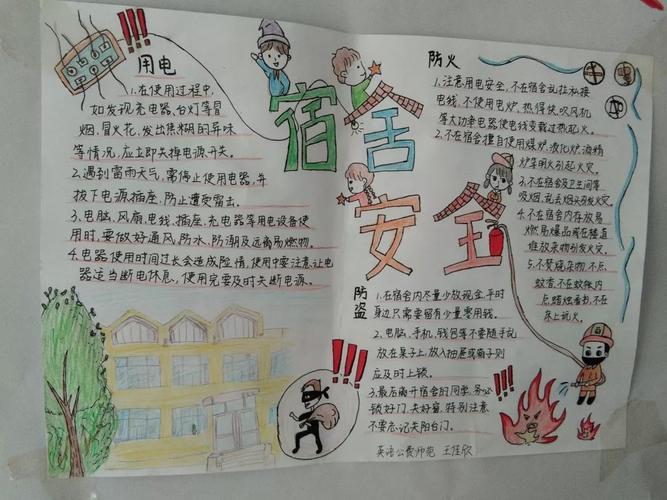 宿舍安全
用电
1.在使用过程中,
如发现充电器,台灯等冒
烟,冒火花,发出焦糊的异味
等情况,应立即关掉电源开关。
2.遇到雷雨天气,需停止使用电器,并
拔下电源插座,防止遭受雷击。
3.电脑,风扇,电线,插座,充电器等用电设备使
用时,要做好通风,防水,防潮及远离易燃物。
4.电器使用时间过长会造成险情,使用中要注意让电
器适当断电休息,使用完要及时关断电源。
防火
1.注意用电安全,不在宿舍乱拉私接
电线,不使用电炉,热得快,吹风机
等大功率电器使电线受载过热起火。
2.不在宿舍擅自使用煤炉,液化炉,酒精
炉等用火引起火灾。
3.不在宿舍及卫生间等
吸烟,乱丢烟头引发火灾。
4.不在宿舍内存放易
燃易爆品或在楼道
堆放杂物引发火灾。
5.不焚烧杂物,不点
蚊香,不在蚊帐内
点蜡烛看书,不在
床上玩火。
防盗
1.在宿舍内尽量少放现金,平时
身边只需要留有少量零用钱。
2.电脑,手机,钱包等不要随手就
放在桌子上,放入抽屉或箱子则
应及时上锁。
3.最后离开宿舍的同学,务必
锁好门,关好窗,特别注意
不要忘记关阳台门。
英语公费师范 王佳欣